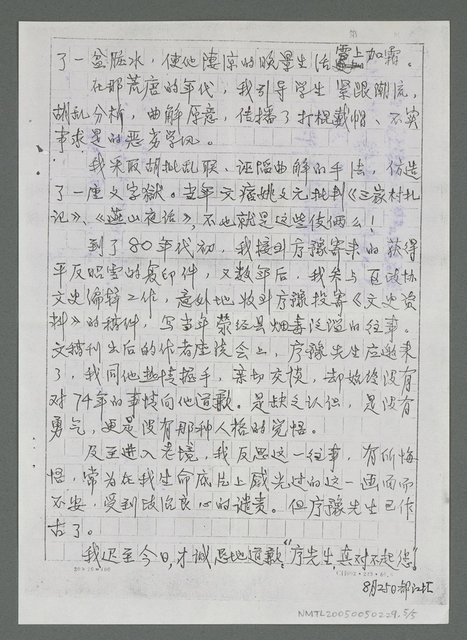 了一盆脏水，使他凄凉的晚景生活雪上加霜。
在那荒唐的年代，我引导学生紧跟潮流，
胡乱分析，曲解原意，传播了打棍戴帽、不实
事求是的恶劣学风。
我采取胡批乱联、诬蹈曲解的手法，仿造
了一座文字獄。当年文痞姚文元批判《三家村札
记》、《燕山夜话》，不也就是这些伎俩么！
到了80年代初，我接到序豫寄来的获得
平反昭雪的复印件，又数年后，我参与区政协
文史编辑工作，意外地收到序豫投寄《文史资
料》的稿件，写当年荥经县烟毒泛滥的往事。
文稿刊出后的作者座谈会上，序豫先生应邀来
了，我同他热情握手，亲切交谈，却始终没有
对74年的事情向他道歉。是缺乏认识，是没有
勇气，更是没有那种人格的觉悟。
及至进入老境，我反思这一往事，有所悔
悟，常为在我生命底片上感光过的这一画面而
不安，受到政治良心的谴责。但序豫先生已作
古了。
我迟至今日，才诚恳地道歉：“序先生，真对不起您。”
8月25日都江江
NMTL20050050229-5/5